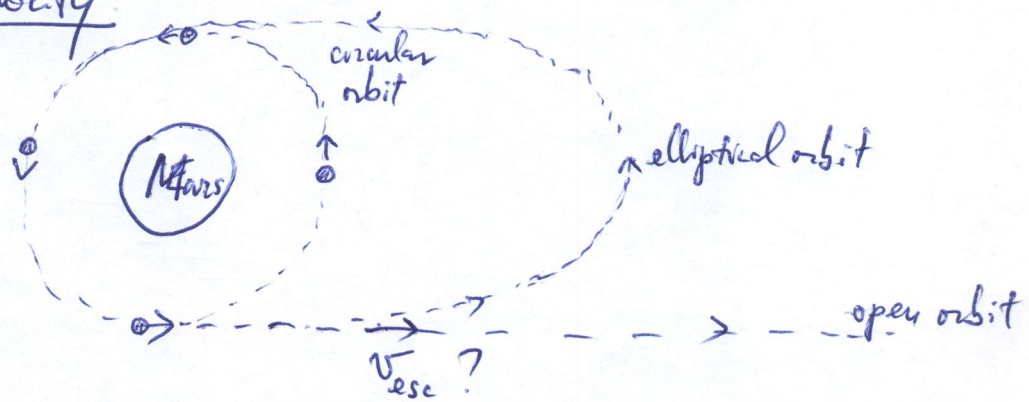 circular
orbit
Mars
elliptical orbit
open orbit
Vesc ?